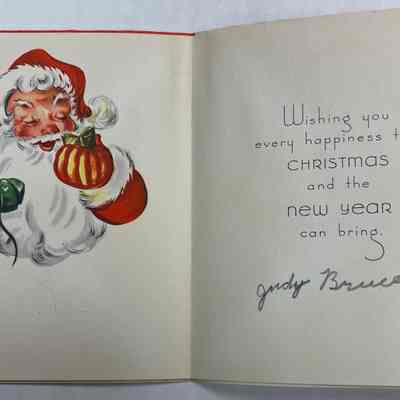 Wishing you
every happiness t
CHRISTMAS
and the
new year
can bring.
Judy Bruce